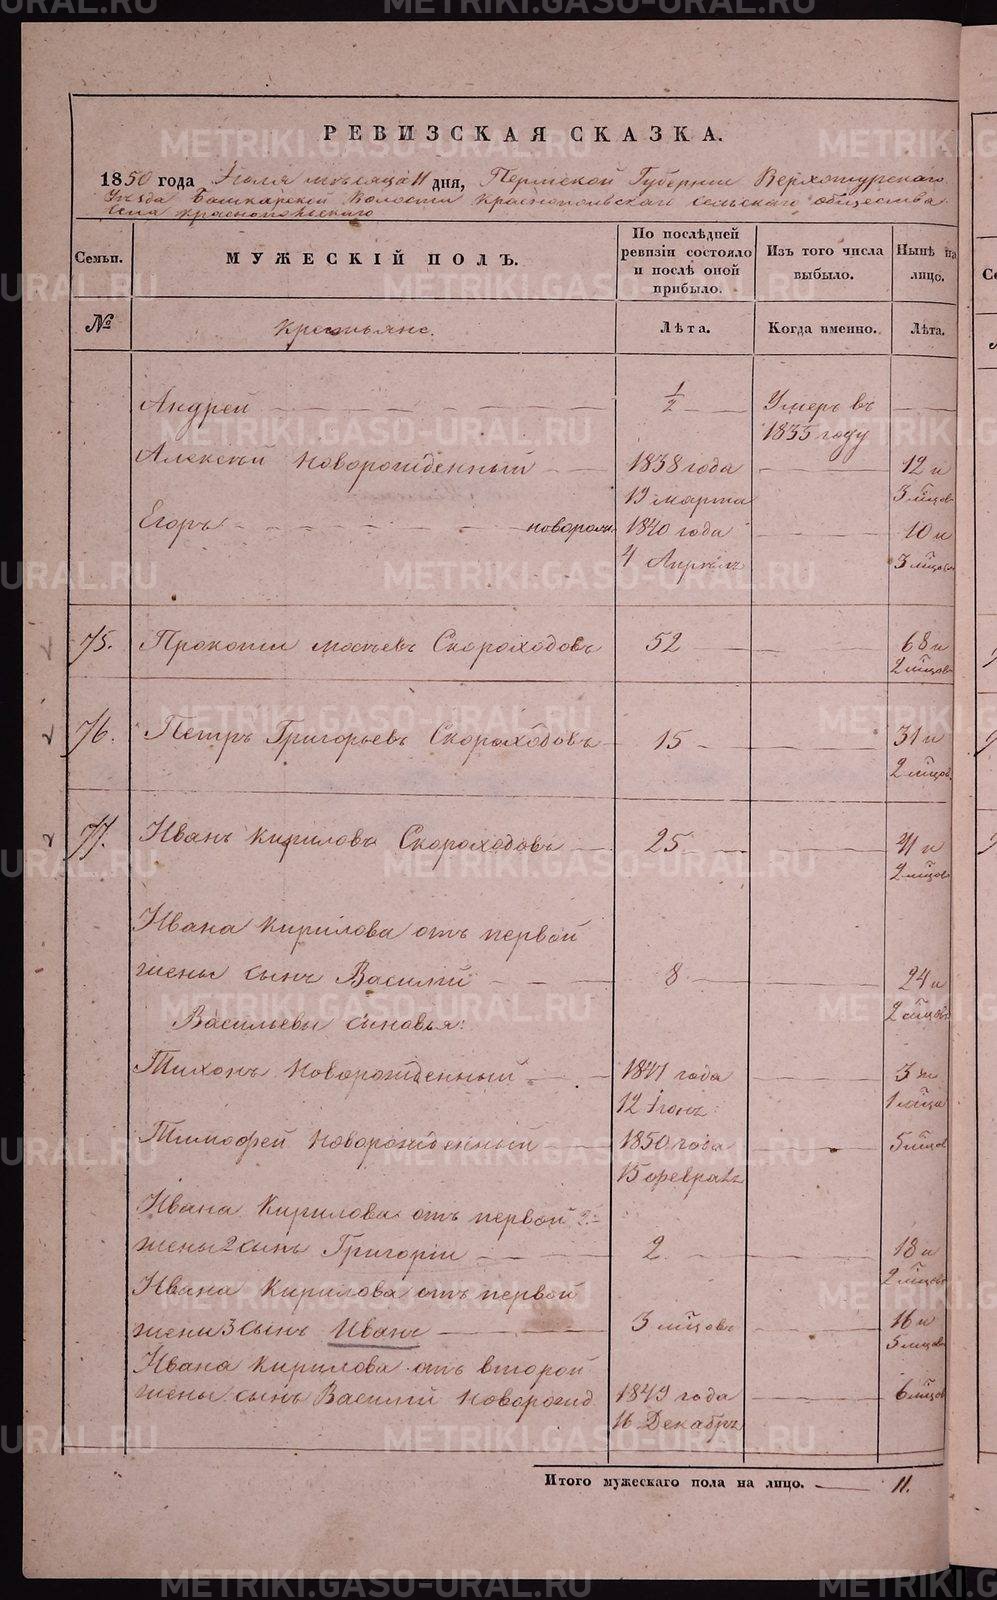 РЕВИЗСКАЯ СКАЗКА.
1850 года Іюля мѣсяца 11 дня, Пермской Губерніи Верхотурскаго
Уѣзда Башкарской Волости Краснопольскаго сельскаго общества
Села Краснопольскаго
Семьи. МУЖЕСКІЙ ПОЛЪ. По послѣдней ревизіи состояло и послѣ оной прибыло. Изъ того числа выбыло. Нынѣ на лицо.
№ Крестьяне. Лѣта. Когда именно. Лѣта.
Андрей 1/2 Умеръ въ
1835 году
Алексѣй Новорожденный 1838 года 12 и
19 марта 3 мѣсцов
Егоръ новорож. 1840 года 10 и
4 Апрѣль 3 мѣсцов
75. Прокопій Скороходовъ 52 68 и
2 мѣсцов
76. Петръ Григорьевъ Скороходовъ 15 31 и
2 мѣсцов.
77. Иванъ Кириловъ Скороходовъ 25 41 и
2 мѣсцов
Ивана Кирилова отъ первой
жены сынъ Василій 8 24 и
2 мѣсцов
Васильевы сыновья:
Тихонъ Новорожденный 1847 года 3 и
12 Іюнь 1 мѣсца
Тимофей Новорожденный 1850 года 5 мѣсцов
15 февраль
Ивана Кирилова отъ первой
жены 2 сынъ Григорій 2 18 и
2 мѣсцов
Ивана Кирилова отъ первой
жены 3 сынъ Иванъ 3 мѣсцовъ 16 и
5 мѣсцов
Ивана Кирилова отъ второй
жены сынъ Василій Новорожд 1849 года 6 мѣсцов
16 Декабрь
Итого мужескаго пола на лицо. 11.
METRIKI.GASO-URAL.RU